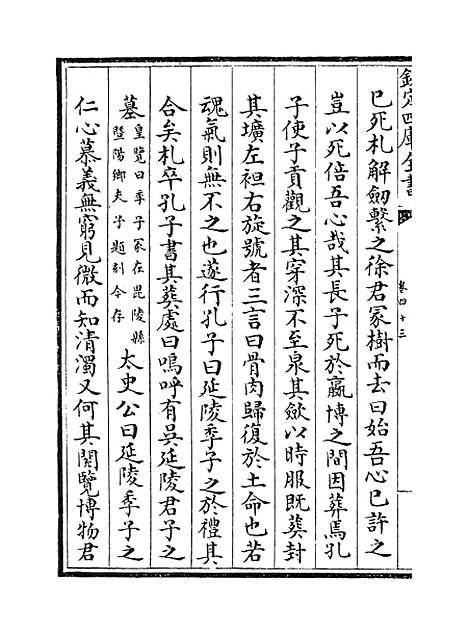 欽定四庫全書
卷四十三
已死札解劒繫之徐君冢樹而去曰始吾心已許之
豈以死倍吾心哉其長子死於嬴博之間因葬焉孔
子使子貢觀之其穿深不至泉其歛以時服既葬封
其壙左袒右旋號者三言曰骨肉歸復於土命也若
魂氣則無不之也遂行孔子曰延陵季子之於禮其
合矣札卒孔子書其葬處曰嗚呼有吳延陵君子之
墓皇覽曰季子冢在毘陵縣
暨陽鄉夫子題刻今存
太史公曰延陵季子之
仁心慕義無窮見微而知清濁又何其閎覽博物君